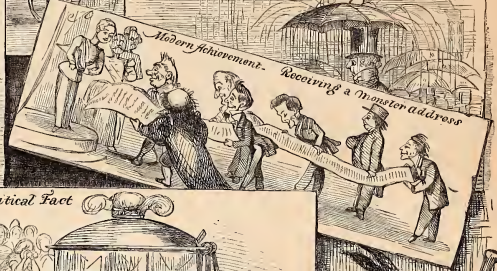 Modern Achievement - Receiving a Monster address
itical Fact